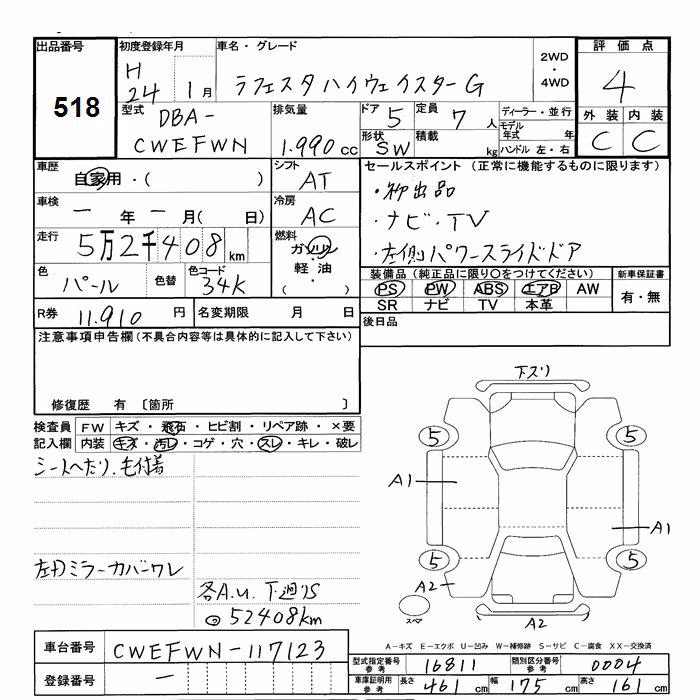 出品番号 518
初度登録年月 H24 1月
車名・グレード ラフェスタハイウェイスターG
2WD・4WD
評価点 4
外装 C 内装 C
型式 DBA-CWEFWN
排気量 1.990cc
ドア 5
形状 SW
定員 7人
積載 kg
ディーラー・並行
モデル年式 年
ハンドル 左・右
車歴 自家用・( )
シフト AT
車検 ー年ー月( 日)
冷房 AC
走行 5万2千408km
燃料 ガソリン 軽油・( )
色 パール 色替 色コード 34K
R券 11.910円 名変期限 月 日
セールスポイント (正常に機能するものに限ります)
・初出品
・ナビ・TV
・左側パワースライドドア
装備品(純正品に限り○をつけてください)
PS PW ABS エアB AW
SR ナビ TV 本革
新車保証書 有・無
後日品
注意事項申告欄(不具合内容等は具体的に記入して下さい)
修復歴 有 〔箇所 〕
検査員記入欄
FW キズ・飛石・ヒビ割・リペア跡・×要
内装 キズ・汚レ・コゲ・穴・スレ・キレ・破レ
シートへたり、毛付着
左ドミラーカバーワレ
各A.U. 下廻りS
◎52408km
下ズリ
5 5
A1
A1
5 5
A2
A2
スペア
A-キズ E-エクボ U-凹み W-補修跡 S-サビ C-腐食 XX-交換済
車台番号 CWEFWN-117123
登録番号 ー
型式指定番号 参考 16811 類別区分番号 参考 0004
車庫証明用 参考 長さ 461cm 幅 175cm 高さ 161cm